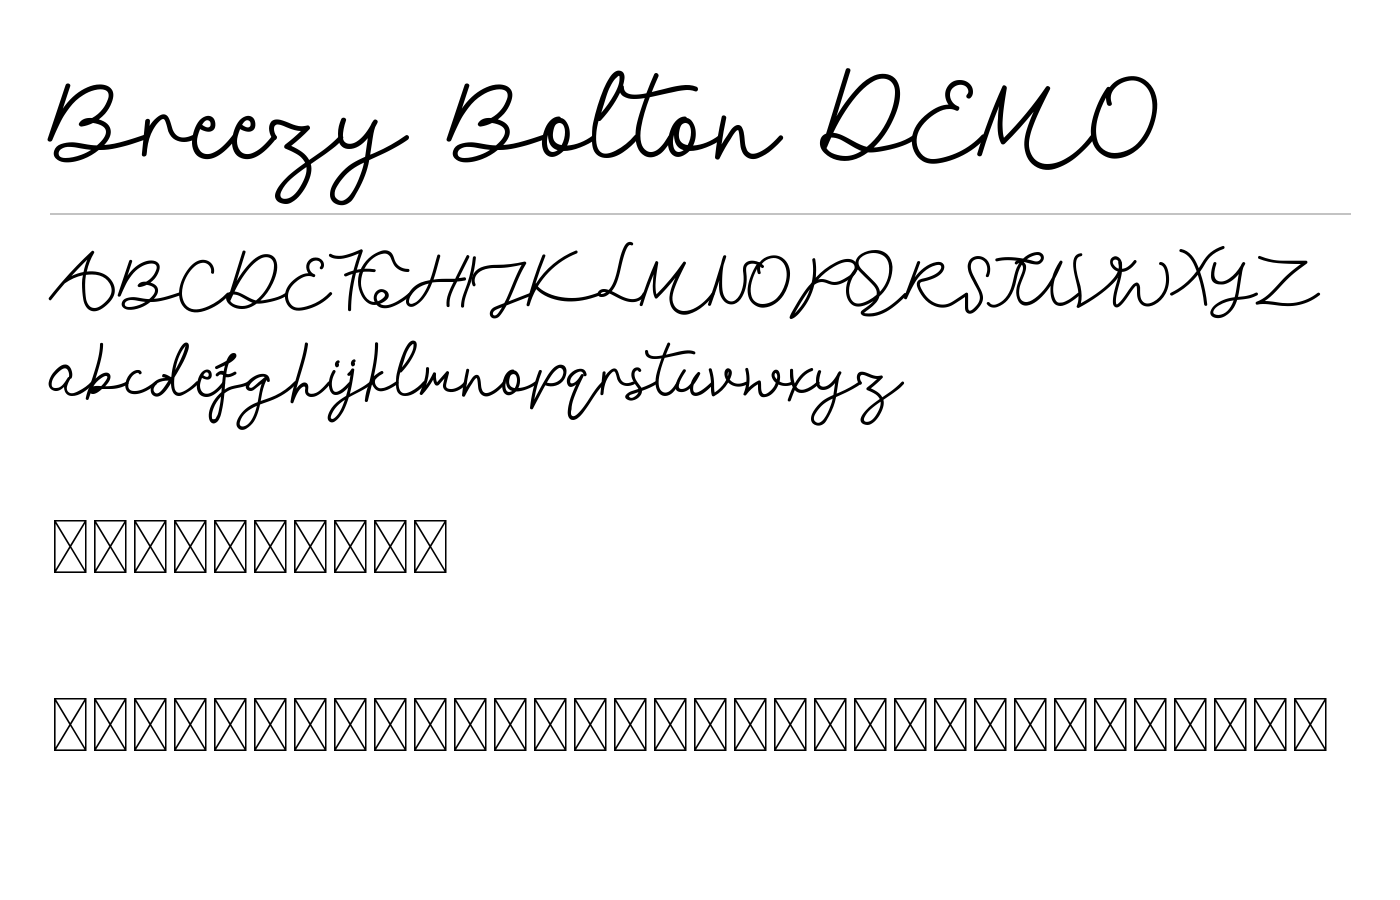 Breezy Bolton DEMO
ABCDEFGHIJKLMNOPQRSTUVWXYZ
abcdefghijklmnopqrstuvwxyz